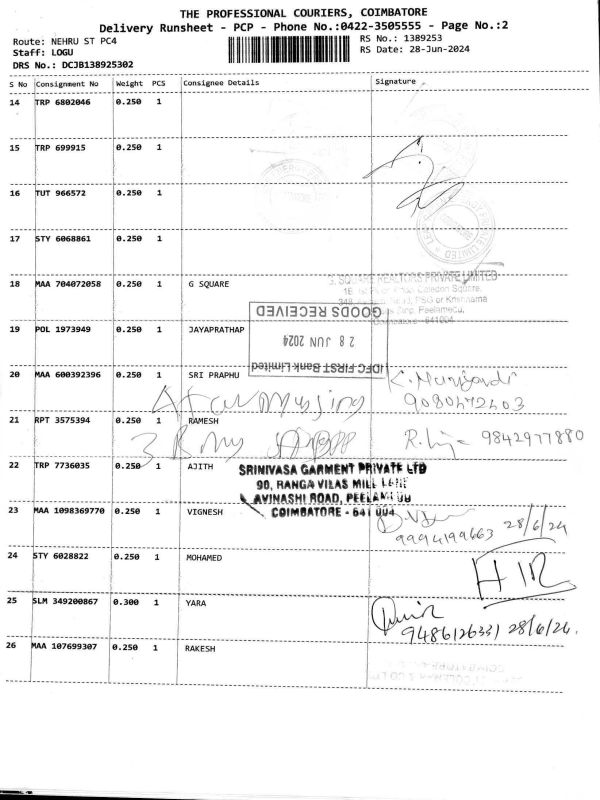 THE PROFESSIONAL COURIERS, COIMBATORE
Delivery Runsheet - PCP - Phone No.:0422-3505555 - Page No.:2
Route: NEHRU ST PC4 RS No.: 1389253
Staff: LOGU RS Date: 28-Jun-2024
DRS No.: DCJB138925302
S No Consignment No Weight PCS Consignee Details Signature
14 TRP 6802046 0.250 1
15 TRP 699915 0.250 1
16 TUT 966572 0.250 1
17 STY 6068861 0.250 1
18 MAA 704072058 0.250 1 G SQUARE
S. SQUARE REALTORS PRIVATE LIMITED
19 POL 1973949 0.250 1 JAYAPRATHAP
GOODS RECEIVED
28 JUN 2024
IDFC FIRST Bank Limited
20 MAA 600392396 0.250 1 SRI PRAPHU
9080472403
21 RPT 3575394 0.250 1 RAMESH
9842977880
22 TRP 7736035 0.250 1 AJITH
SRINIVASA GARMENT PRIVATE LTD
90, RANGA VILAS MILL
AVINASHI ROAD,
COIMBATORE - 641 004
23 MAA 1098369770 0.250 1 VIGNESH
9994199663 28/6/24
24 STY 6028822 0.250 1 MOHAMED
25 SLM 349200867 0.300 1 YARA
9486126331 28/6/24.
26 MAA 107699307 0.250 1 RAKESH